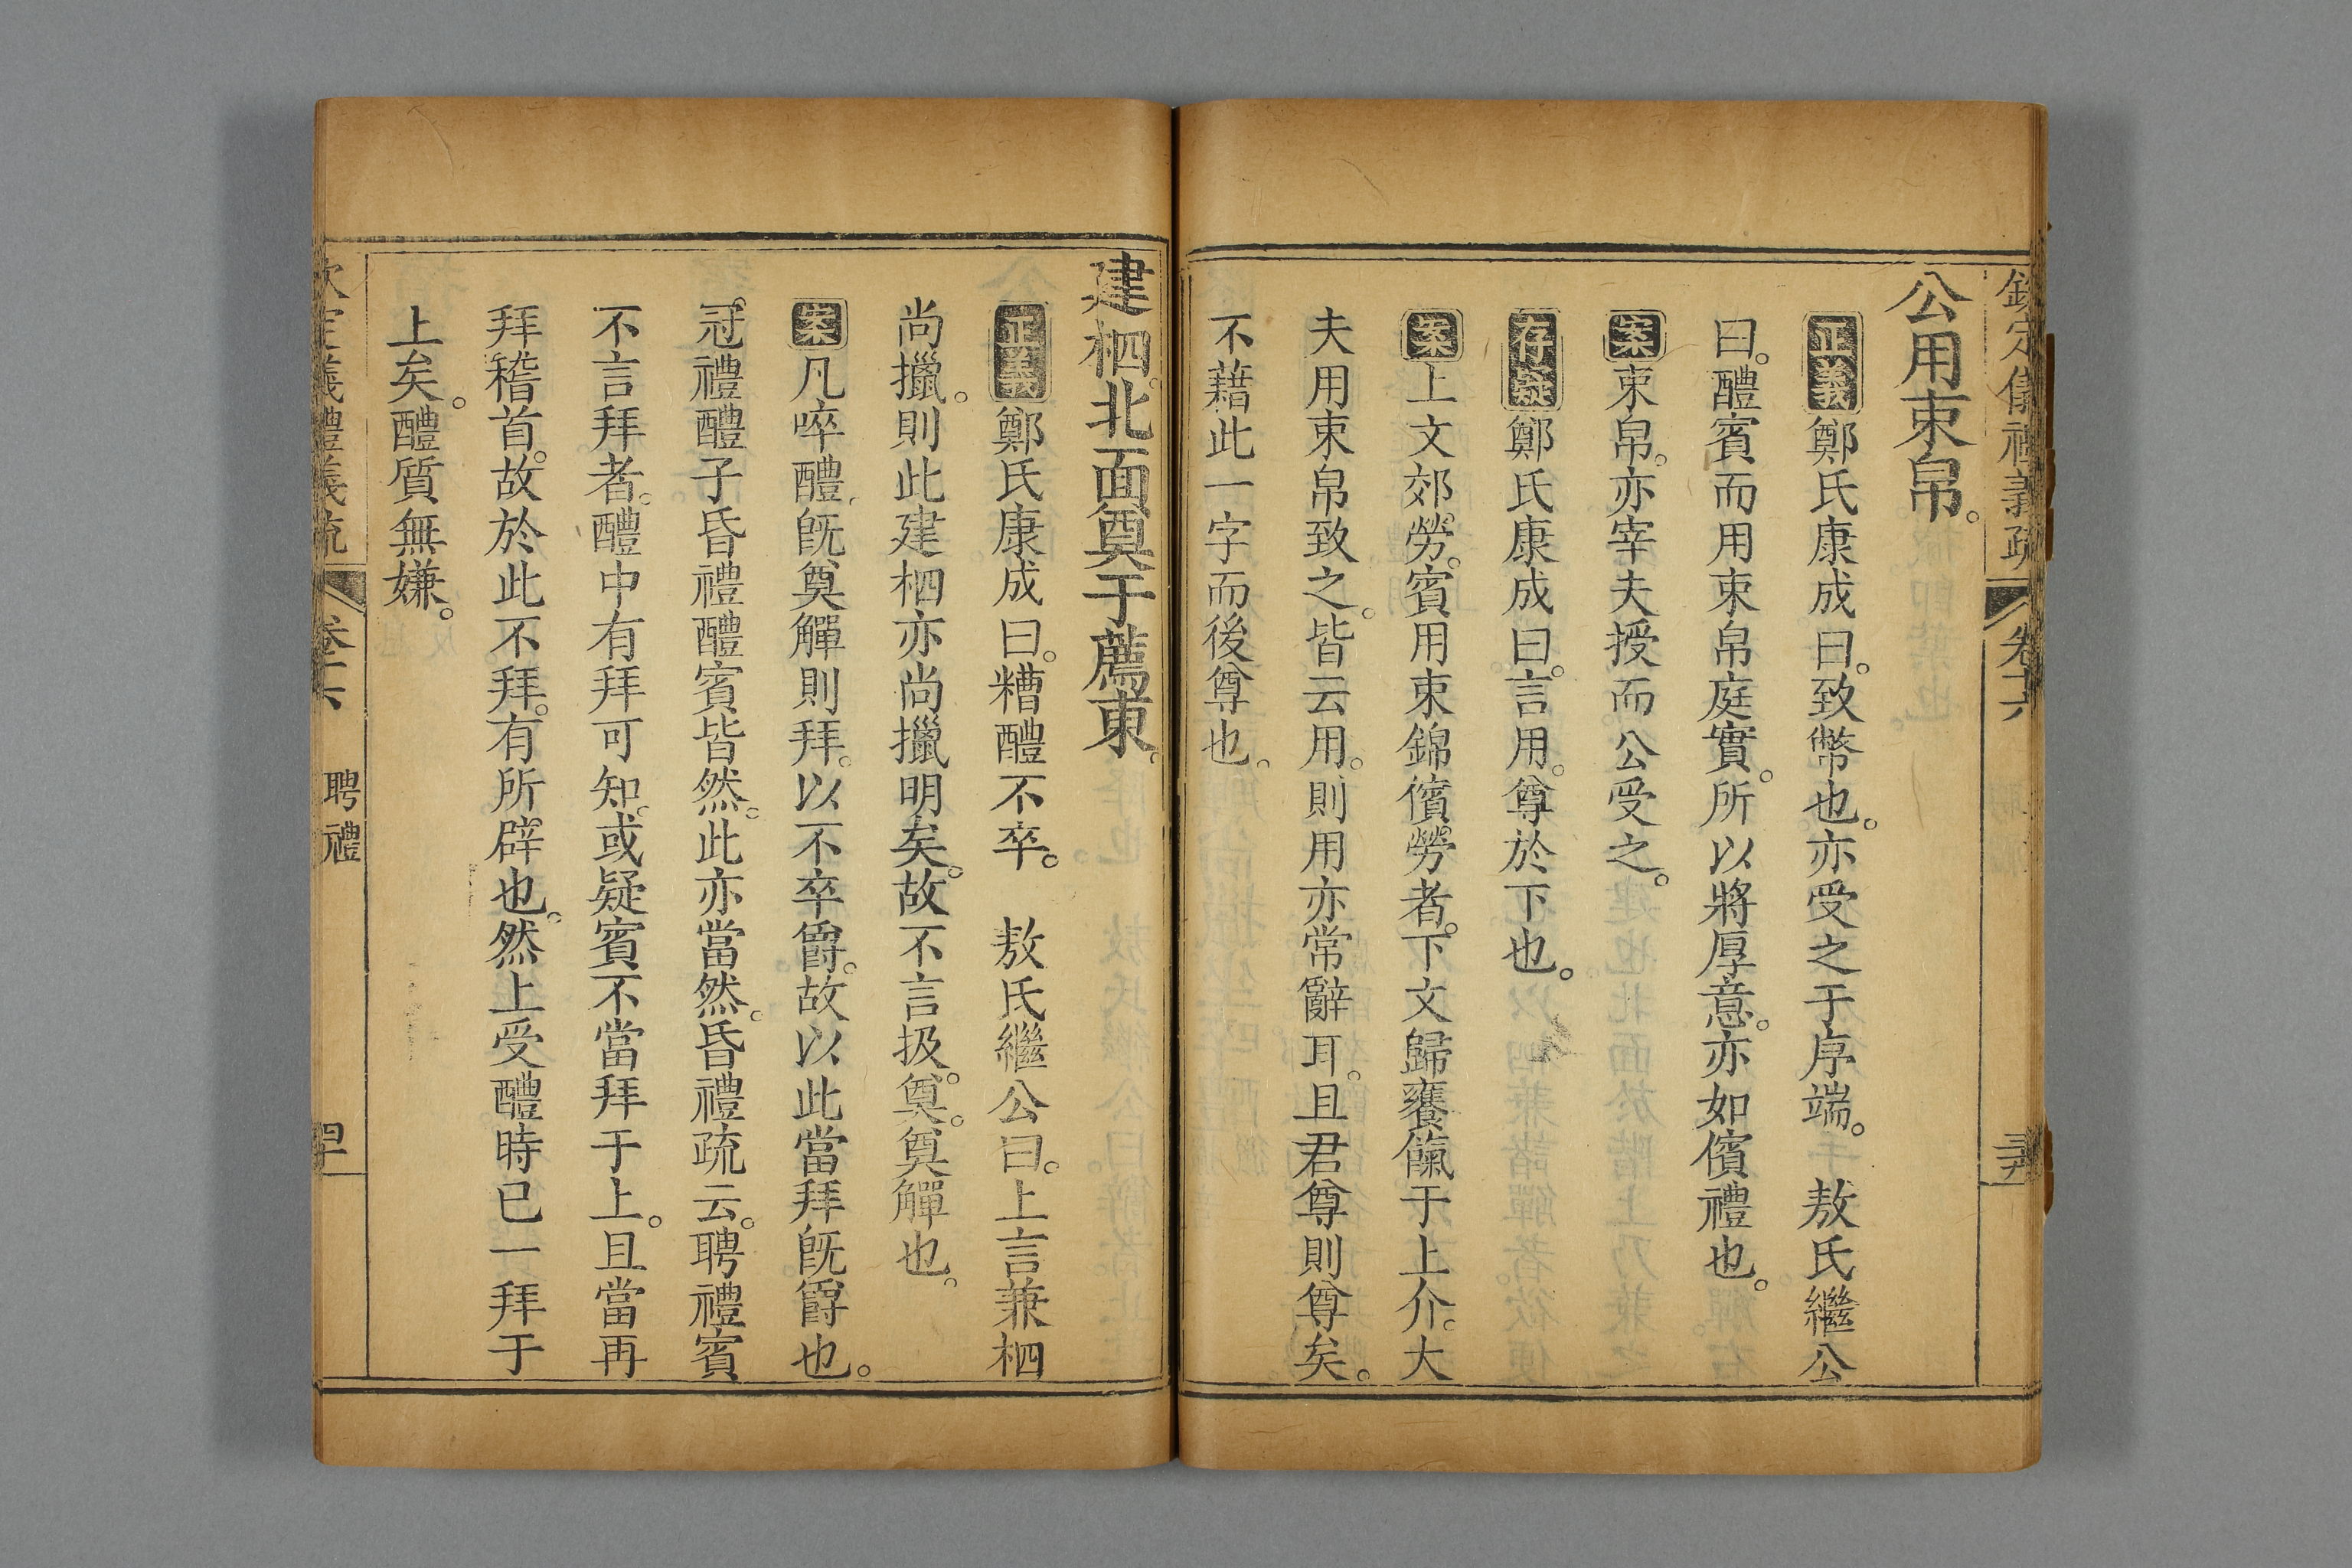 欽定儀禮義疏 卷十六 三十九
公用束帛。
正義鄭氏康成曰。致幣也。亦受之于序端。 敖氏繼公
曰。醴賓而用束帛庭實。所以將厚意。亦如儐禮也。
案束帛。亦宰夫授而公受之。
存疑鄭氏康成曰。言用。尊於下也。
案上文郊勞。賓用束錦儐勞者。下文歸饔餼于上介。大
夫用束帛致之。皆云用。則用亦常辭耳。且君尊則尊矣。
不藉此一字而後尊也。
建柶。北面奠于薦東。
正義鄭氏康成曰。糟醴不卒。 敖氏繼公曰。上言兼柶
尚擸。則此建柶亦尚擸明矣。故不言扱。奠。奠觶也。
案凡啐醴。旣奠觶則拜。以不卒爵。故以此當拜旣爵也。
冠禮醴子昏禮醴賓皆然。此亦當然。昏禮疏云。聘禮賓
不言拜者。醴中有拜可知。或疑賓不當拜于上。且當再
拜稽首。故於此不拜。有所辟也。然上受醴時已一拜于
上矣。醴質無嫌。
欽定儀禮義疏 卷十六 聘禮 四十